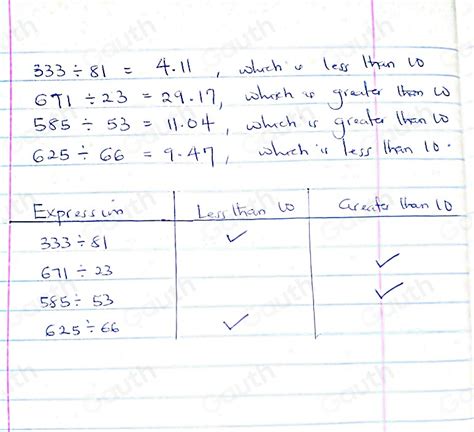 333 ÷ 81 = 4.11, which is less than 10
671 ÷ 23 = 29.17, which is greater than 10
585 ÷ 53 = 11.04, which is greater than 10
625 ÷ 66 = 9.47, which is less than 10.
Expression Less than 10 Greater than 10
333 ÷ 81 ✓
671 ÷ 23 ✓
585 ÷ 53 ✓
625 ÷ 66 ✓
Gauth